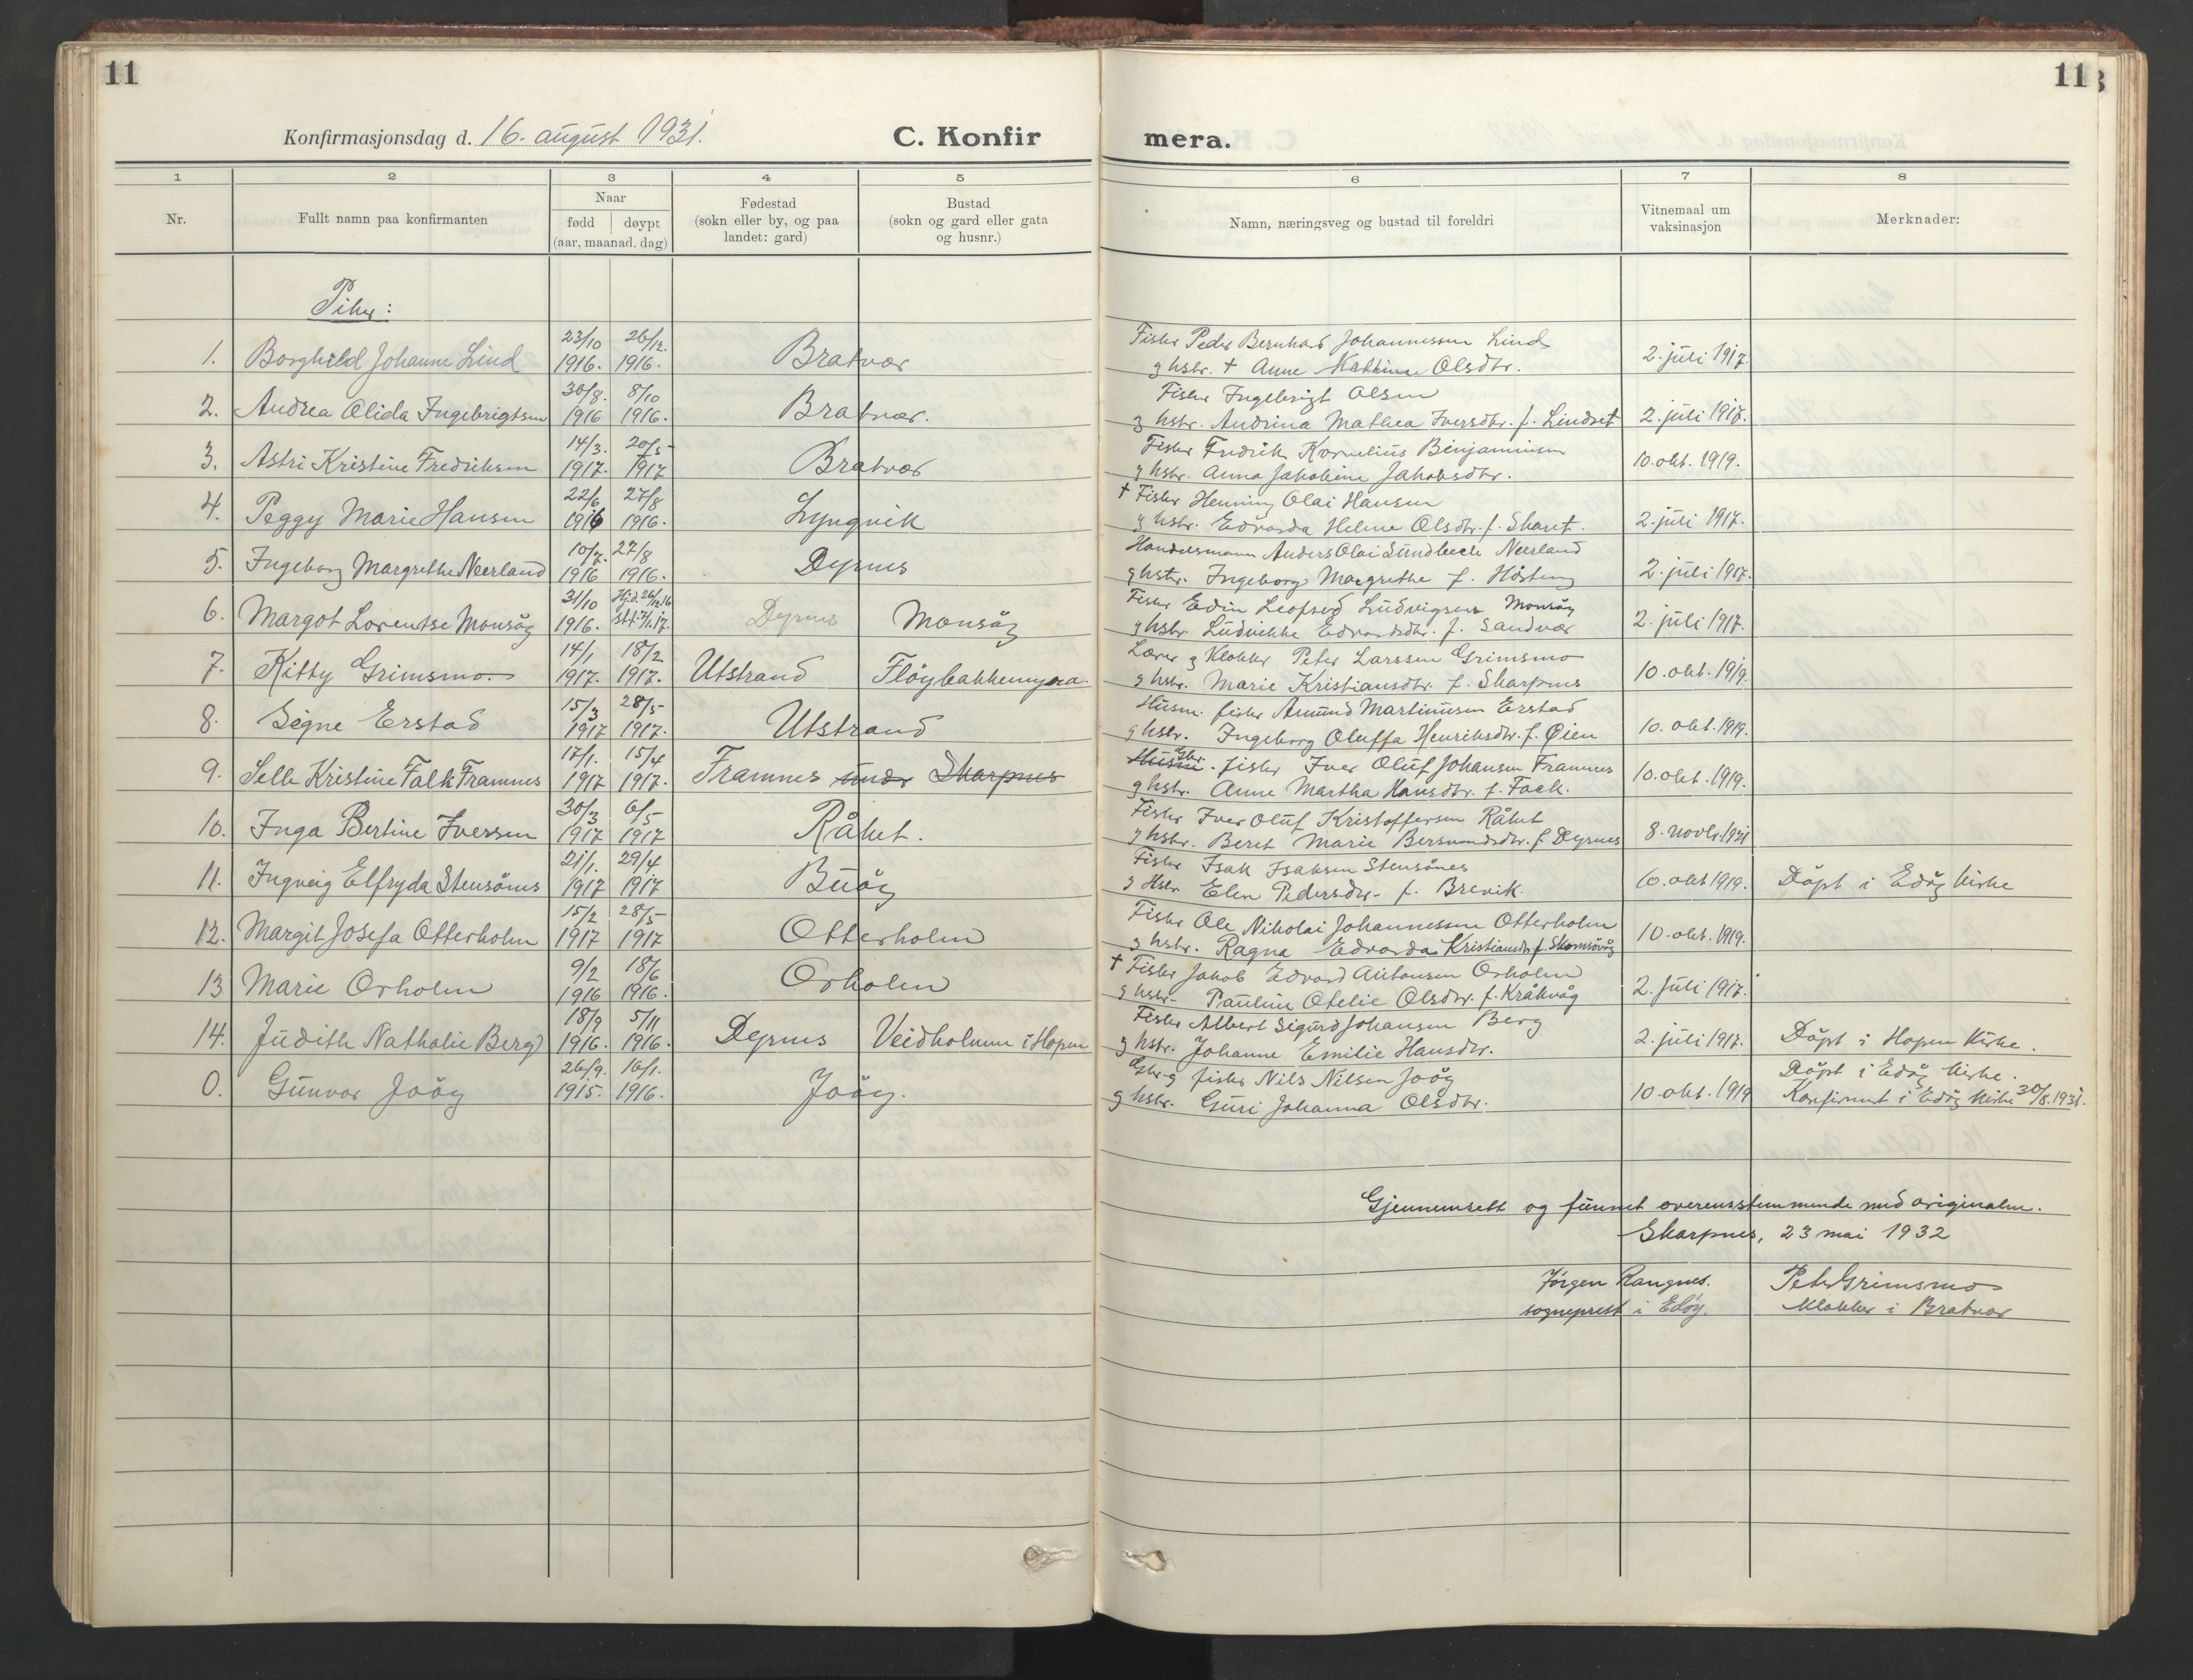 11
11
Konfirmasjonsdag d. 16. august 1931.
C. Konfirmera.
1 2 3 4 5 6 7 8
Nr.
Fullt namn paa konfirmanten
Naar
fødd døypt
(aar, maanad. dag)
Fødestad
(sokn eller by, og paa
landet: gard)
Bustad
(sokn og gard eller gata
og husnr.)
Namn, næringsveg og bustad til foreldri
Vitnemaal um
vaksinasjon
Merknader:
Piker:
1. Borghild Johanne Lind 23/10 1916. 26/12. 1916. Bratvær
Fisker Peder Bernhard Johannessen Lind
g hstr. † Anne Kathrine Olsdtr. 2. juli 1917.
2. Andrea Olida Ingebrigtsen 30/8. 1916 8/10 1916. Bratvær.
Fisker Ingebrigt Olsen
g hstr. Andrina Mathea Iversdtr. f. Lindset 2. juli 1917.
3. Astri Kristine Fredriksen 14/3. 1917. 20/5 1917 Bratvær
Fisker Fredrik Kornelius Benjaminsen
g hstr. Anna Jakobine Jakobsdtr. 10. okt. 1919.
4. Peggy Marie Hansen 22/6 1916 27/8 1916. Lyngvik
† Fisker Henning Olai Hansen
g hstr. Edvarda Helene Olsdtr. f. Skaret. 2. juli 1917.
5. Ingeborg Margrethe Neerland 10/7. 1916 27/8 1916. Dyrnes
Handelsmann Anders Olai Sundbeck Neerland
g hstr. Ingeborg Margrethe f. Hösteng 2. juli 1917.
6. Margot Lorentse Monsøy 31/10 1916. Hj.d. 26/12.16 st.f. 7/1.17. Dyrnes Monsøy
Fisker Edin Leofred Ludvigsen Monsøy
g hstr. Ludvikke Edvardsdtr. f. Sandvær 2. juli 1917.
7. Kitty Grimsmo 14/1 1917. 18/2 1917. Utstrand Fløybakkemyra.
Lærer g Klokker Peter Larssen Grimsmo
g hstr. Marie Kristiansdtr. f. Skarpnes 10. okt. 1919.
8. Signe Erstad 15/3 1917 28/5 1917. Utstrand
Husm. fisker Amund Martinusen Erstad
g hstr. Ingeborg Oluffa Henriksdtr. f. Øien 10. okt. 1919.
9. Selle Kristine Falk Framnes 17/1. 1917 15/4 1917. Framnes under Skarpnes
Husm. Gbr. fisker Iver Oluf Johansen Framnes
g hstr. Anne Martha Hansdtr. f. Fack. 10. okt. 1919.
10. Inga Bertine Iversen 30/3 1917 6/5 1917 Råket.
Fisker Iver Oluf Kristoffersen Råket
g hstr. Beret Marie Bersvendsdtr. f. Dyrnes 8. novbr. 1921
11. Ingveig Elfryda Stensönes 21/1. 1917 29/4 1917 Buøy
Fisker Isak Isaksen Stensönes
g Hstr Elen Pedersdtr. f. Brevik. 10. okt 1919. Døpt i Edøy kirke
12. Margit Josefa Otterholm 15/2 1917 28/5 1917 Otterholm
Fisker Ole Nikolai Johannessen Otterholm
g hstr. Ragna Edvarda Kristiansdtr. f. Skomsøvåg 10. okt. 1919.
13 Marie Orholm 9/2 1916 18/6 1916. Orholm
† Fisker Jakob Edvard Antonsen Orholm
g hstr. Pauline Otelie Olsdtr. f. Kråkvåg 2. juli 1917.
14. Judith Nathalie Berg 18/9 1916. 5/11 1916. Dyrnes Veidholmen i Hopen
Fisker Albert Sigurd Johansen Berg
g hstr. Johanne Emilie Hansdtr. 2. juli 1917. Døpt i Hopen Kirke.
0. Gunvor Joøy 26/9. 1915. 16/1. 1916. Joøy.
Gbr. g fisker Nils Nilsen Joøy
g hstr. Guri Johanna Olsdtr. 10. okt. 1919
Døpt i Edøy kirke.
Konfirmert i Edøy kirke 30/8. 1931.
Gjennemsett og funnet overensstemmende med originalen.
Skarpnes, 23 mai 1932
Jörgen Rangnes.
sogneprest i Edøy.
Peter Grimsmo
Klokker i Bratvær